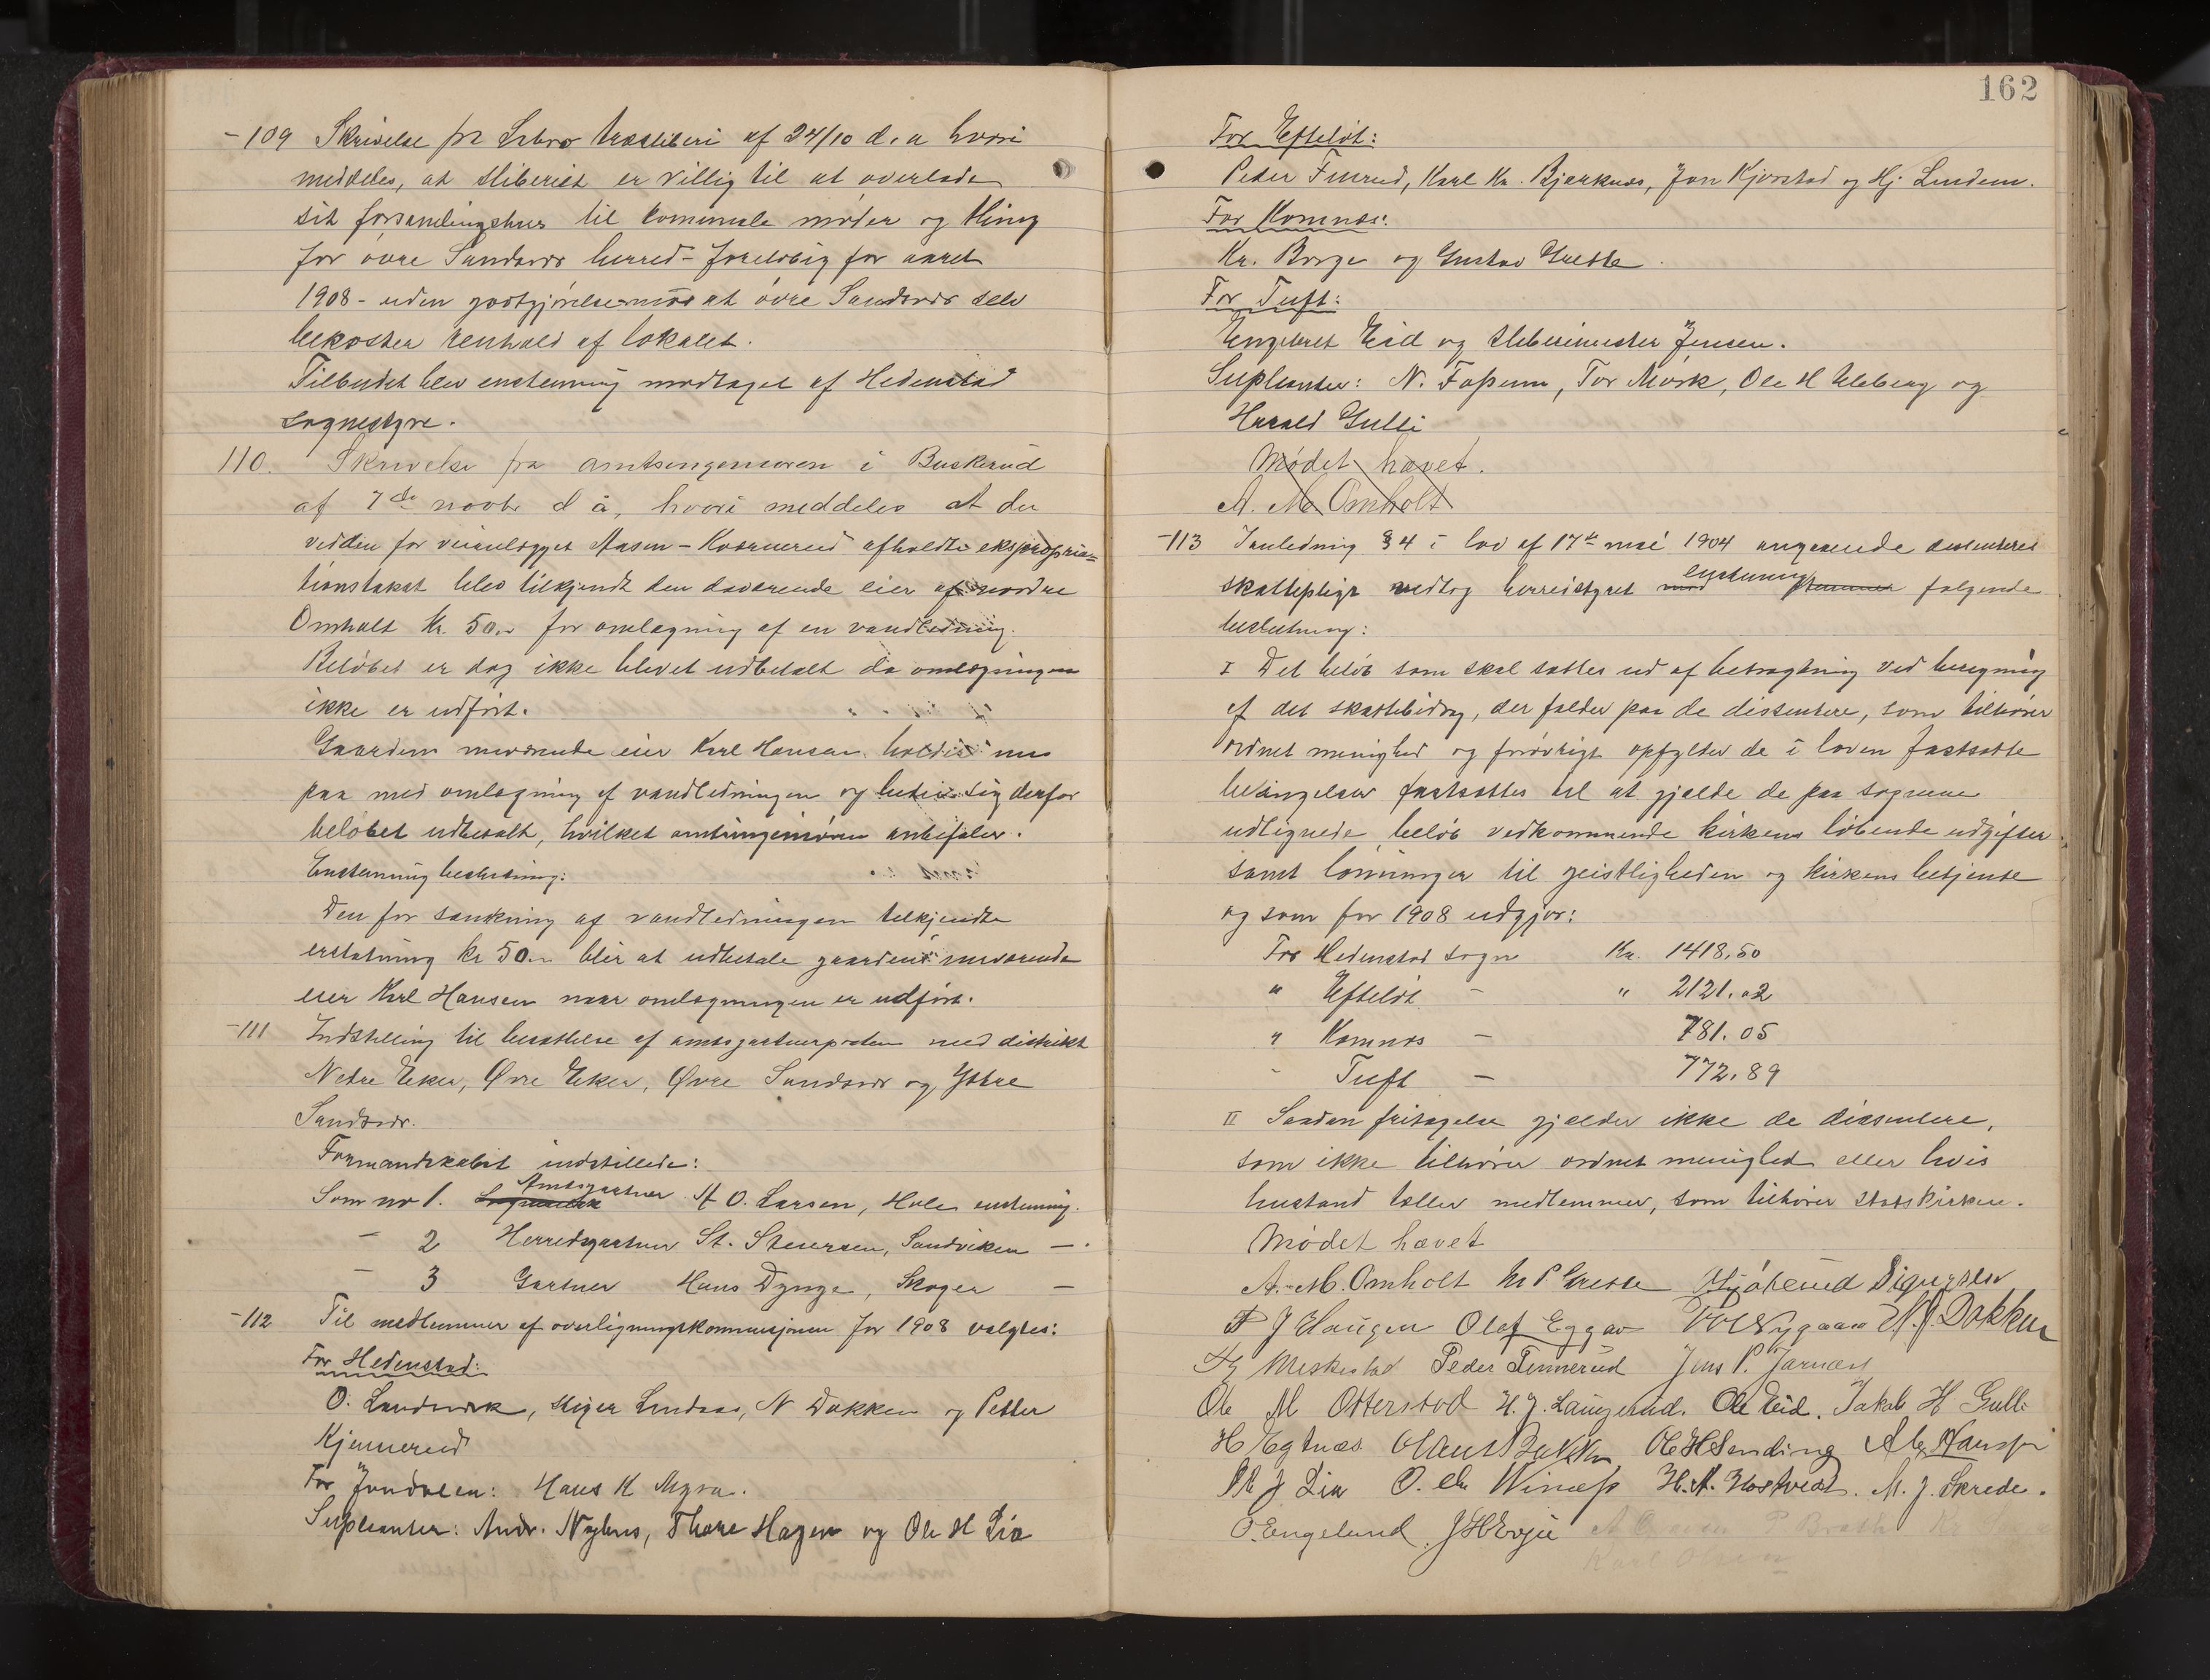 -109 Skrivelse fra Labro træsliberi af 24/10 d.a hvori
meddeles, at sliberiet er villig til at overlade
sit forsamlingshus til kommunale møder og thing
for øvre Sandsvær herred - foreløbig for aaret
1908 - uden godtgjørelse mod at øvre Sandsvær selv
bekoster renhold af lokalet.
Tilbudet blev enstemmig modtaget af Hedenstad
sognestyre.
110. Skrivelse fra amtsingeniøren i Buskerud
af 7de novbr d å, hvori meddeles at der
ved den for veianlægget Aasen - Kværnerud afholdte ekspropria-
tionstakst blev tilkjendt den daværende eier af nordre
Omholt kr. 50.- for omlægning af en vandledning.
Beløbet er dog ikke blevet udbetalt da omlægningen
ikke er udført.
Gaardens nuværende eier Karl Hansen holder nu
paa med omlægning af vandledningen og beder sig derfor
beløbet udbetalt, hvilket amtsingeniøren anbefaler.
Enstemmig beslutning:
Den for sænkning af vandledningen tilkjendte
erstatning kr 50.- blir at udbetale gaardens nuværende
eier Karl Hansen naar omlægningen er udført.
-111 Indstilling til besættelse af amtsgartnerposten med distrikt
Nedre Eker, Øvre Eker, Øvre Sandsvær og Ytre
Sandsvær.
Formandskabet indstillede:
Som no 1. Amtsgartner A O. Larsen, Hole enstemmig.
- 2 Herredsgartner St. Steversen, Sandviken -
- 3 Gartner Hans Dynge, Skoger -
-112 Til medlemmer af overligningskommisjonen for 1908 valgtes:
For Hedenstad:
O. Landsverk, Lindaas, N Dokken og Petter
Kjennerud
For Jondalen: Hans K Myra.
Suplianter: Andr. Nyhus, Thore Hagen og Ole H Lia
162
For Efteløt:
Peder Finrud, Karl Kr. Bjerknes, Jon Kjørstad og Hj. Lindem.
For Komnæs:
Kr. Borge og Gustav Grette.
For Tuft:
Engebret Eid og slibemester Jensen.
Suplianter: N. Fossum, Tor Mørk, Ole H Ulleberg og
Harald Gulli
Mødet hævet.
A. M. Omholt
-113 I anledning § 4 i lov af 17de mai 1904 angaaende dissenteres
skattepligt vedtog herredstyret enstemmig følgende
beslutning:
I Det beløb som skal sættes ud af betragtning ved beregning
af det skattebidrag, der falder paa de dissentere, som tilhører
ordnet menighed og forøvrigt opfylder de i loven fastsatte
betingelser fastsættes til at gjælde de paa sognene
udlignede beløb vedkommende kirkens løbende udgifter
samt lønninger til geistligheden og kirkens betjente
og som for 1908 udgjør:
For Hedenstad sogn Kr. 1418.50
" Efteløt - " 2121.02
" Komnæs - 781.05
- Tuft - 772.89
II Saadan fritagelse gjælder ikke de dissentere,
som ikke tilhører ordnet menighed eller hvis
husstand tæller medlemmer, som tilhører statskirken.
Mødet hævet
A. M. Omholt M P Grette Sigurdsen
P J Haugen Olaf Eggar Nygaard H. J. Dokken
Meskestad Peder Finnerud Jens P. Jarnæs
Ole M Otterstad H. J. Laugerud. Ole Eid. Jakob H Gulli
H Egtnæs Olaus Bakke Ole H Sending Hansen
Ole J Lia O. Chr Winness H. A. Kostveit. M. J. Skrede.
O. Engelund J H Evju P Bratli
Karl Olsen